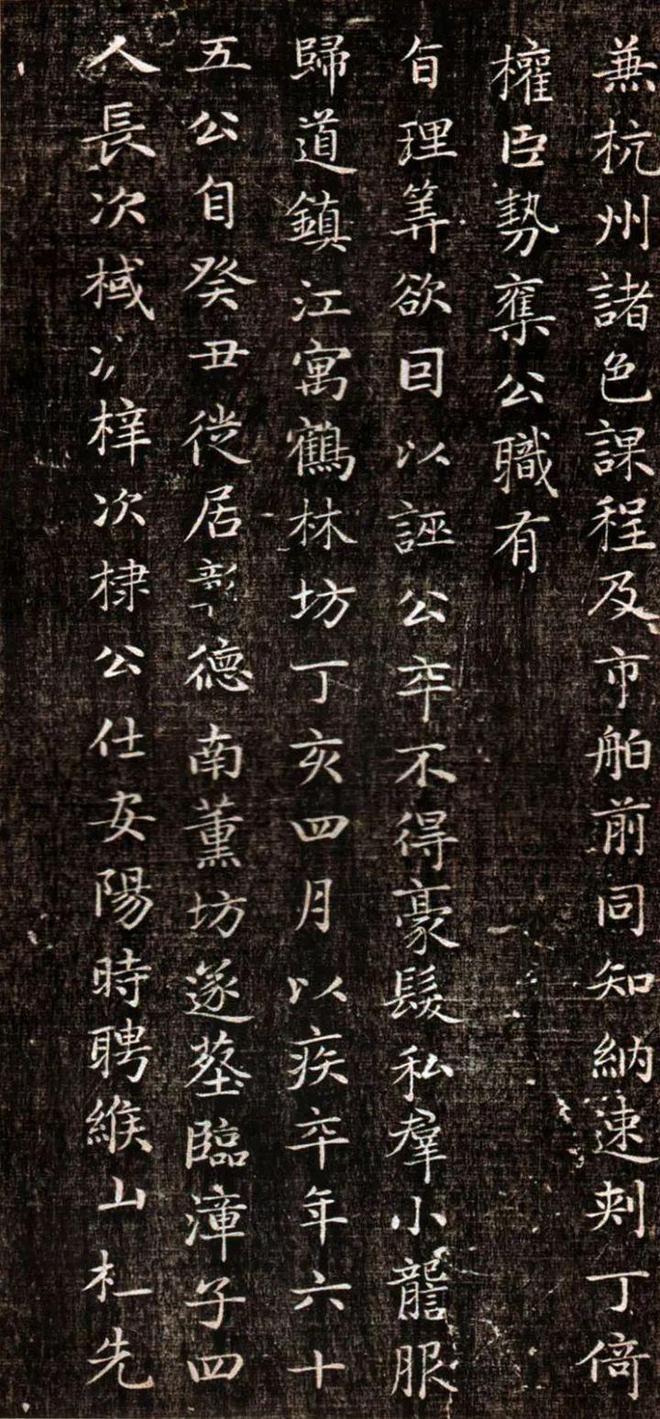 兼杭州諸色課程及市舶前同知納速剌丁倚
權臣勢奪公職有
旨理筭欲囙以誣公卒不得豪髮私羣小讋服
歸道鎮江寓鶴林坊丁亥四月以疾卒年六十
五公自癸丑徙居彰德南薰坊遂葬臨漳子四
人長次棫次梓次棣公仕安陽時聘緱山杜先